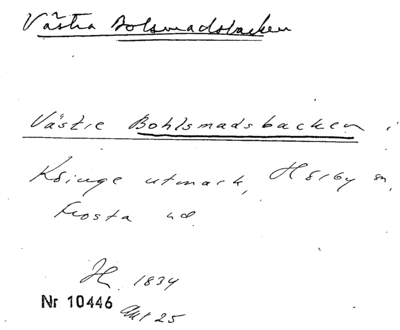 Västra Bolsmadsbacken
Västre Bohlsmadsbacken i
Ksinge utmark, Hörby sn,
Frosta hd.
H. 1834
Nr 10446 Akt 25